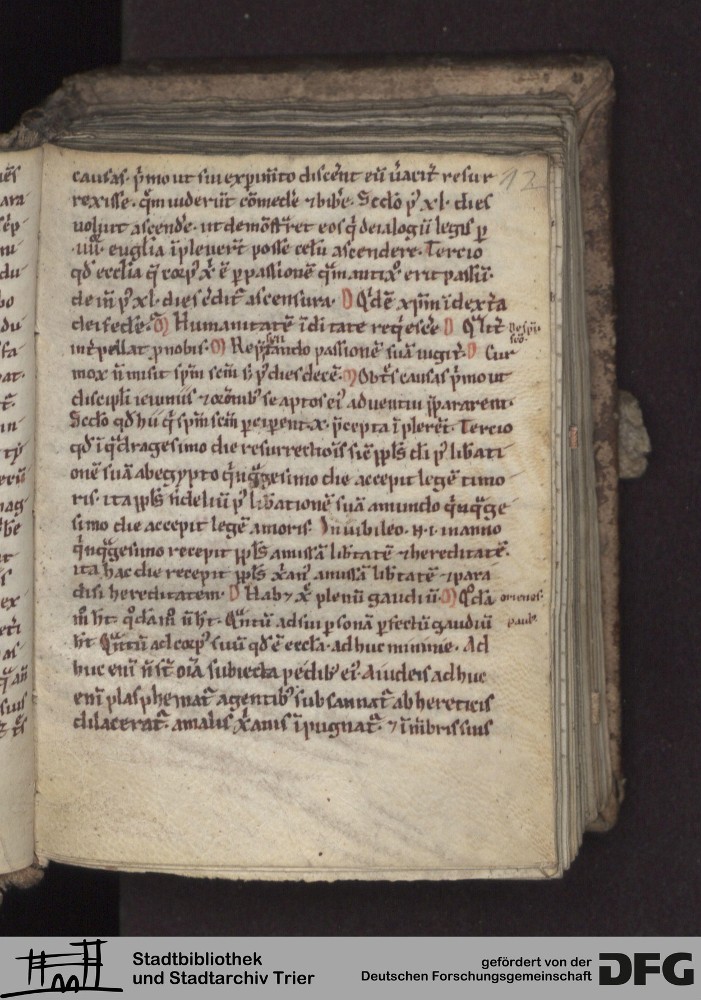 12
causas. p̄mo ut sui experim̄to discer̄nt eū ūacit̄ resur
rexisse. q̄m uiderūt cōmede᷑ ⁊ bibe᷑. Scđo p᷒ xl. dies
uoluit ascende᷑. ut demōstraret eos q̄ decalogū legis p̱
.iiii. euḡlia īpleuer̄t posse celū ascendere. Tercio
qđ ecclīa q̄ corp᷒ x̄ ē p̱ passionē q̄m antix᷒ erit passu᷑.
dem̄ p᷒ xl. dies c̄dit᷑ ascensura. D Qđ ē xp̄m ī dext̄a
dei sede᷑e. M Humanitatē ī diītate req̄esce᷑e D Q̄lit̄
int̄pellat p̱ nobis. M Rep̄sentando passionē suā iugit̄. D Cur
mox n̄ misit sp̄m sc̄m s; p᷒ dies decē. M Ob t̄s causas p̄mo ut
discipl̄i ieiuniis ⁊ or̄onib᷒ se aptos ei᷒ aduentui p̄pararent.
Scđo qđ hii q̄ sp̄m sc̄m p̱cip̱ent. x. p̄cepta īplere᷑t. Tercio
qđ ī q̄dragesimo die resurrectiōis sic̄ ppl̄s dī p᷒ lib̄ati
onē suā ab egypto q̄nq̄gesimo die accepit legē timo
ris. ita ppl̄s fidelīu p᷒ lib̄ationē suā a mundo q̄nq̄ge
simo die accepit legē amoris. In iubileo. H. i. in anno
q̄nq̄gesimo recepit ppl̄s amissā lib̄tatē ⁊ hereditatē.
ita hac die recepit ppl̄s x̄an᷒ amissā lib̄tatē ⁊ para
disi hereditatem. D Hab; x̄ plenū gaudiū. M Qđā
m̊ ht̄. qđā m̊ n̄ ht̄. Q̄ntū ad sui p̱sonā p̱fectū gaudiū
ht̄ Q̄ntū ad corp᷒ suū qđ ē eccl̄a. adhuc minime. Ad
huc enī n̄ st̄ oīa subiecta pedib᷒ ei᷒. A iudeis adhuc
enī plasphemat᷑ a gentib᷒ subsannat᷑ ab hereticis
dilacerat᷑. a malis x̄anis īpugnat᷑. ⁊ ī mēbris suis
Stadtbibliothek
und Stadtarchiv Trier
gefördert von der
Deutschen Forschungsgemeinschaft
DFG